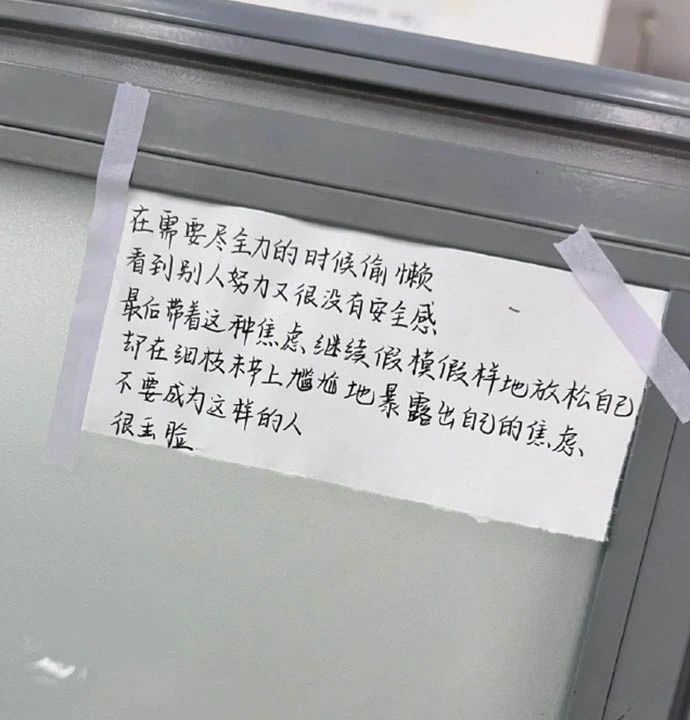 在需要尽全力的时候偷懒
看到别人努力又很没有安全感
最后带着这种焦虑继续假模假样地放松自己
却在细枝末节上尴尬地暴露出自己的焦虑
不要成为这样的人
很丢脸